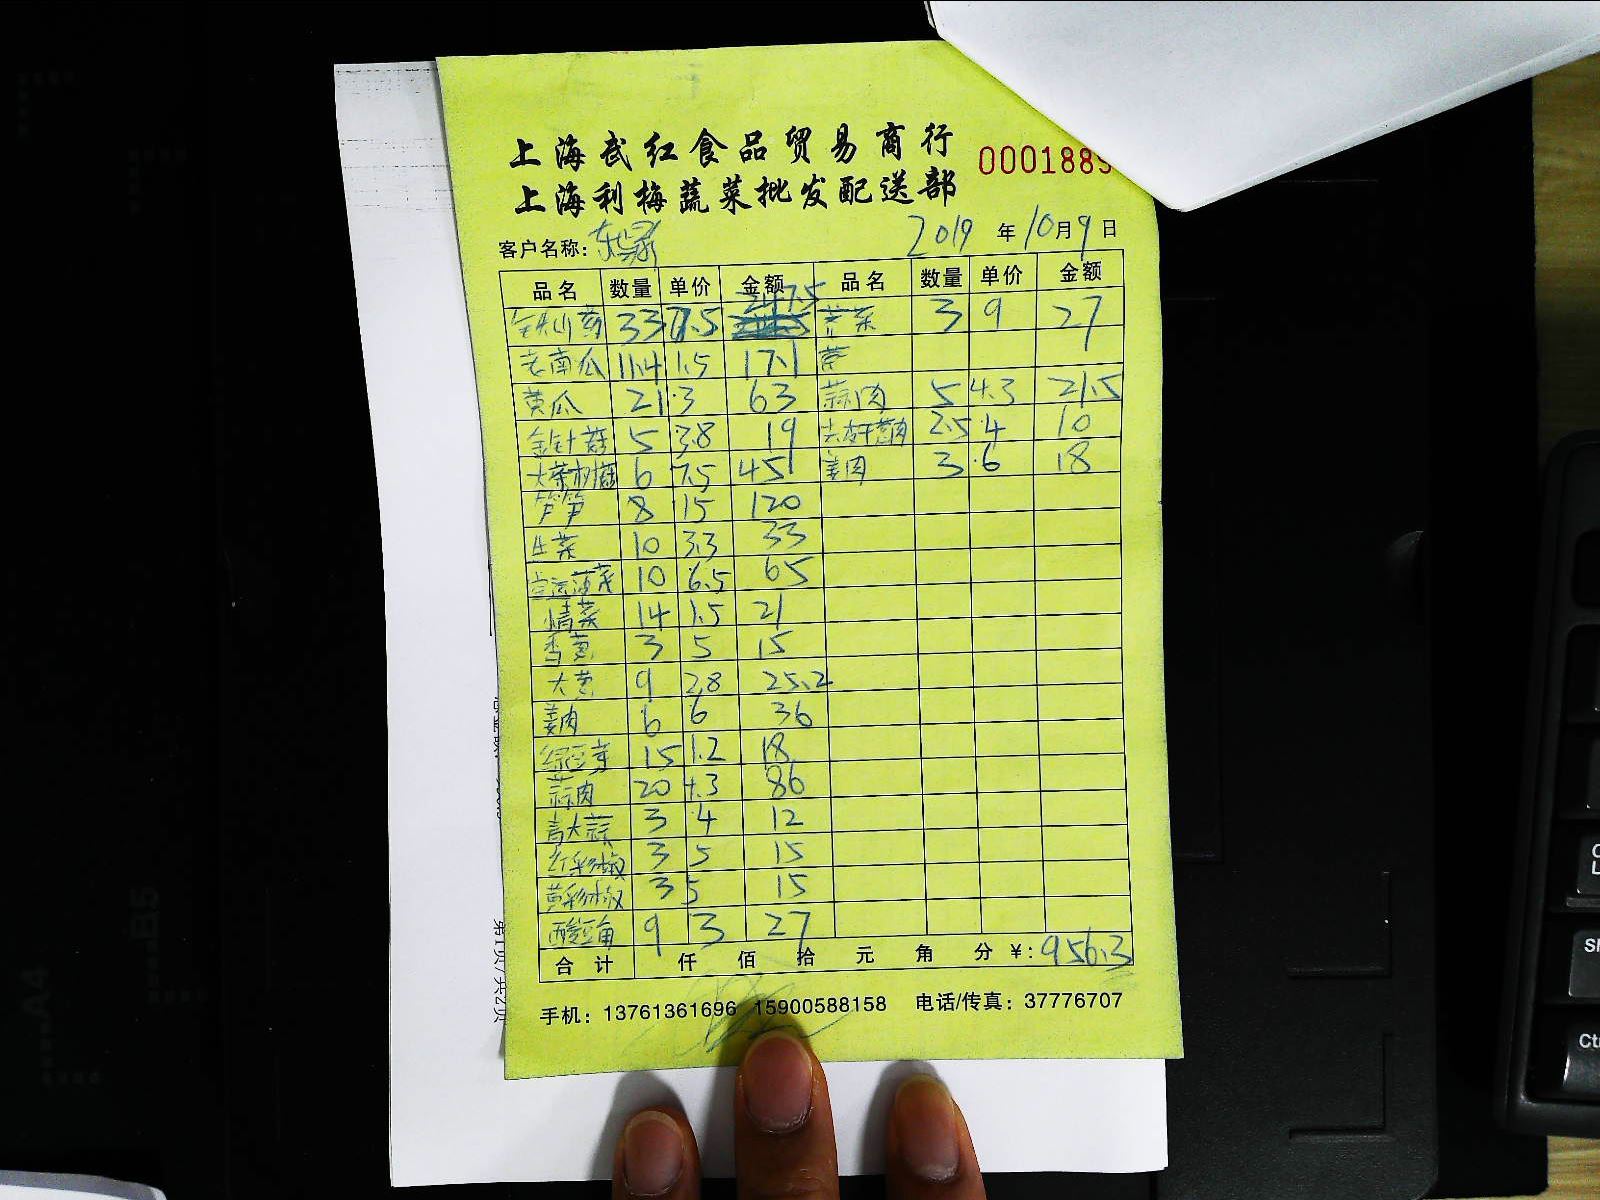 上海武红食品贸易商行
上海利梅蔬菜批发配送部
000188
客户名称:
2019 年 10 月 9 日
品名 数量 单价 金额 品名 数量 单价 金额
铁山药 33 7.5 247.5 3 9 27
老南瓜 11.4 1.5 17.1
黄瓜 21 3 63 蒜肉 5 4.3 21.5
金针菇 5 3.8 19 2.5 4 10
6 7.5 45 姜肉 3 6 18
8 15 120
生菜 10 3.3 33
菠菜 10 6.5 65
14 1.5 21
香葱 3 5 15
大葱 9 2.8 25.2
姜肉 6 6 36
绿豆芽 15 1.2 18
蒜肉 20 4.3 86
青大蒜 3 4 12
红彩椒 3 5 15
黄彩椒 3 5 15
酸豆角 9 3 27
合计 仟 佰 拾 元 角 分 ¥: 956.3
手机: 13761361696 15900588158 电话/传真: 37776707
第1页/共2页
B5
A4